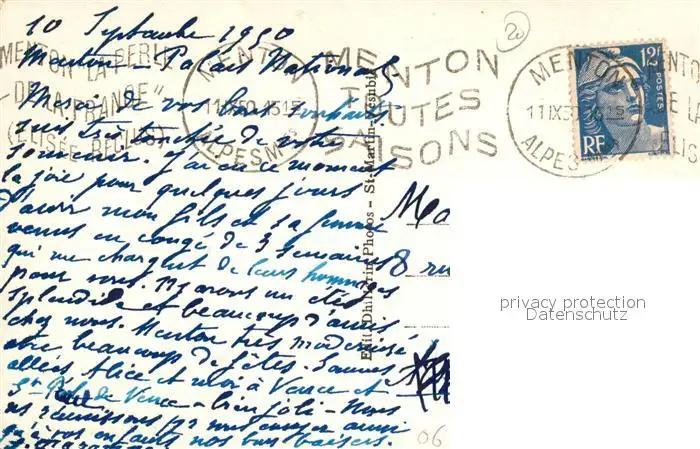 10 Septembre 1950
Menton - Palais National
Merci de vos bons
suis très de votre
souvenir. J'ai en ce moment
la joie pour quelques jours
d'avoir mon fils et sa femme
venus en congé de 3 semaines
qui me chargent de leurs hommages
pour vous. Ns avons un été
splendide et beaucoup d'amis
chez nous. Menton très modernisé
beaucoup de fêtes. Sommes
allées Alice et moi à Vence et
St Paul de Vence - bien joli - Nous
ns réunissons pr vous envoyer ainsi
qu'à vos enfants nos bons baisers.
MENTON LA PERLE
DE LA FRANCE"
(ELISÉE RECLUS)
MENTON
ALPES Mmes
MENTON
TOUTES
SAISONS
MENTON
11 IX 50
ALPES
12F
POSTES
RF
MENTON
DE LA
ELIS
Edit. Photos - St-Martin-Vésubie
Ma
8 ru
privacy protection
Datenschutz
20
06